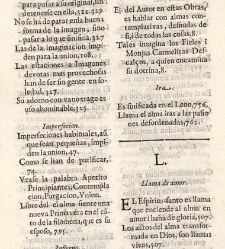 para su original, sin
detenerse en lo pintado, 326.
No se ha de parar en la buena
forma de la imagen, sino
pasar a lo que significa, 327.
Las de la imaginacion impi
den para la union, 108.
Las estaciones a imagenes
devotas mas provechosas
han de ser sin gente en so-
ledad, 327.
Su adorno con vano trage es
abominable, 325.
Imperfeccion.
Imperfecciones habituales, aũ
que sean pequeñas, impi-
den la union, 47.
Como se han de purificar,
74.
Vease la palabra Aperito
Principiantes, Contempla
cion, Purgacion, Vnion.
Libre del el alma siente una
nueva Primavera en el cã
to de la filomena, que es su
esposo, 795.
El del Autor en estas Obras,
es hablar con almas con-
templativas, desnudas de
si de todas las cosas, 8.
Tales imagina los Fieles i
Monjas Carmelitas Des-
calços, a quien encamina
su dotrina, 8.
Ira.
Es significada en el Leon, 756.
Llama el alma iras a las pasio
nes desordenadas, 762.
L.
Llama de amor.
EL Espiritu santo es llama
que enciende al alma en
amor i baña de gloria, 507.
Los actos del alma transfor-
mada en Dios, son llamas
vivas, 507.